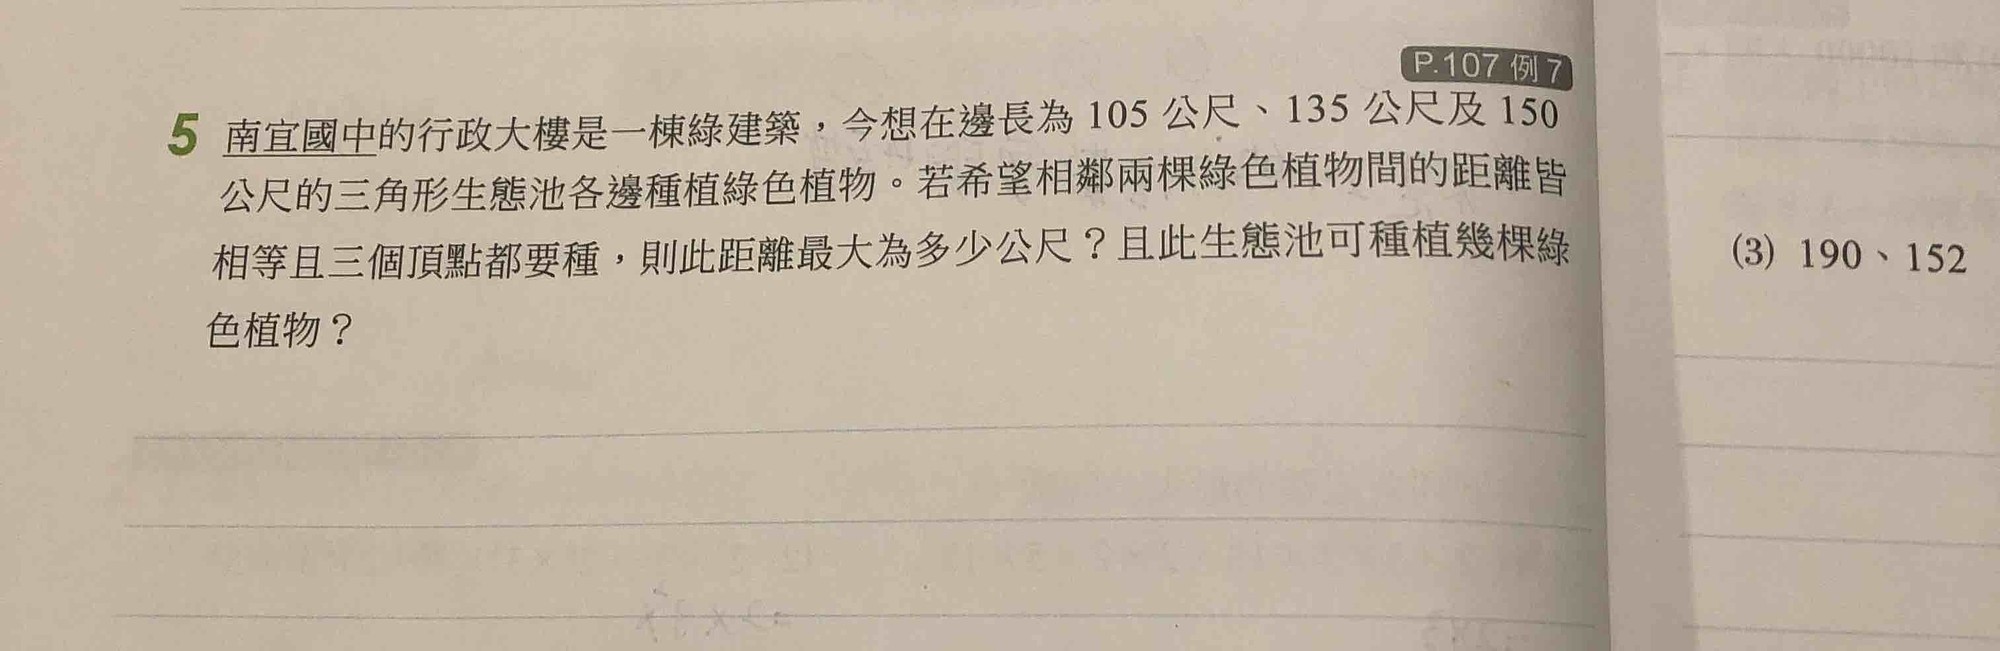 P.107 例7
5 南宜國中的行政大樓是一棟綠建築,今想在邊長為 105 公尺、135 公尺及 150
公尺的三角形生態池各邊種植綠色植物。若希望相鄰兩棵綠色植物間的距離皆
相等且三個頂點都要種,則此距離最大為多少公尺?且此生態池可種植幾棵綠
色植物?
(3) 190、152